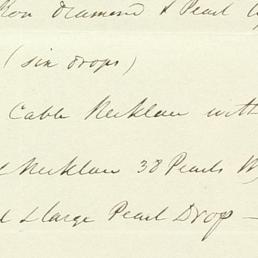 Diamond & Pearl
(six drops)
Cable Necklace with
Necklace 38 Pearls
& large Pearl Drop —